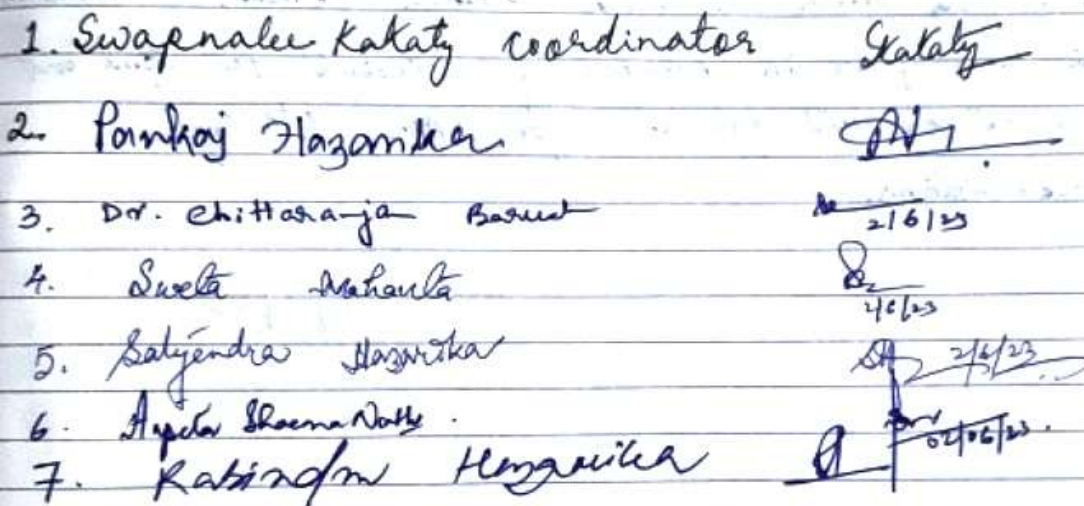 1. Swapnalee Kakaty coordinator Skakaty
2. Pankaj Hazarika
3. Dr. Chittaranja Baruah 2/6/23
4. Sweta Mahanta 2/6/23
5. Satyendra Hazarika SH 2/6/23
6. Arpita Sharma Nath. 02/06/23.
7. Rabindra Hazarika